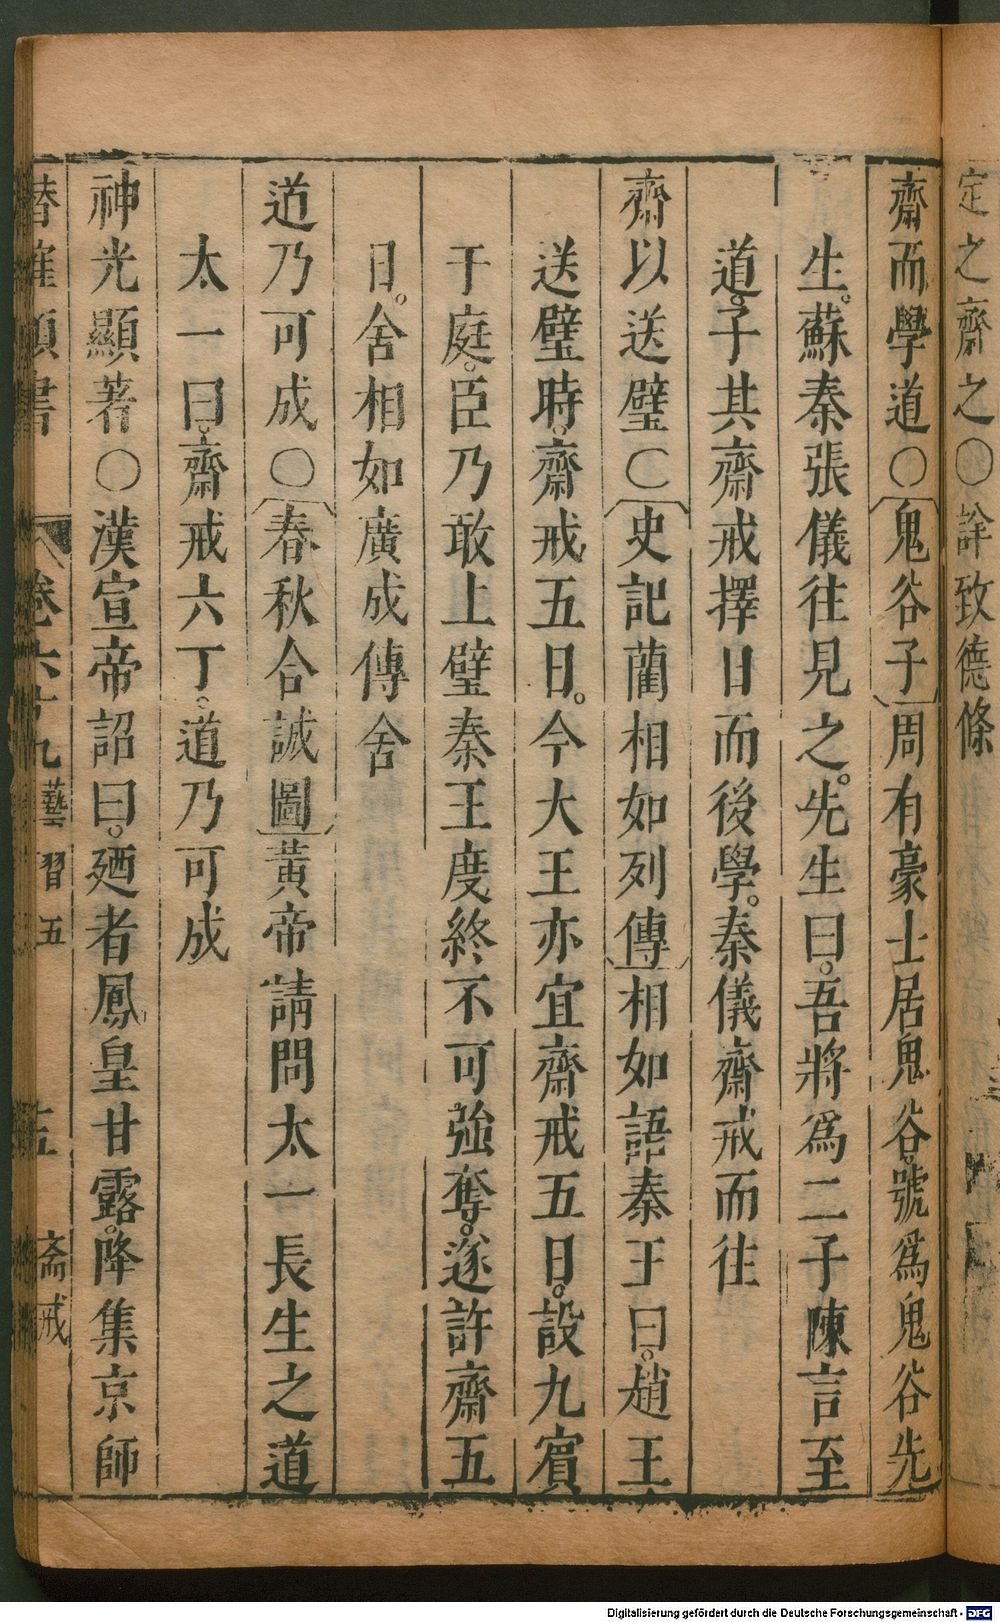 定之齋之〇詮致德條
齋而學道〇鬼谷子周有豪士居鬼谷。號爲鬼谷先
生。蘇秦張儀往見之。先生曰。吾將爲二子陳言至
道。子其齋戒擇日而後學。秦儀齋戒而往
齋以送璧〇史記藺相如列傳相如語秦王曰。趙王
送璧時。齋戒五日。今大王亦宜齋戒五日。設九賓
于庭。臣乃敢上璧秦王度終不可強奪。遂許齋五
日。舍相如廣成傳舍
道乃可成〇春秋合誠圖黃帝請問太一長生之道
太一曰。齋戒六丁。道乃可成
神光顯著〇漢宣帝詔曰。廼者鳳皇甘露。降集京師
潛確類書 卷六十九 藝習五 五 斋戒
Digitalisierung gefördert durch die Deutsche Forschungsgemeinschaft - DFG